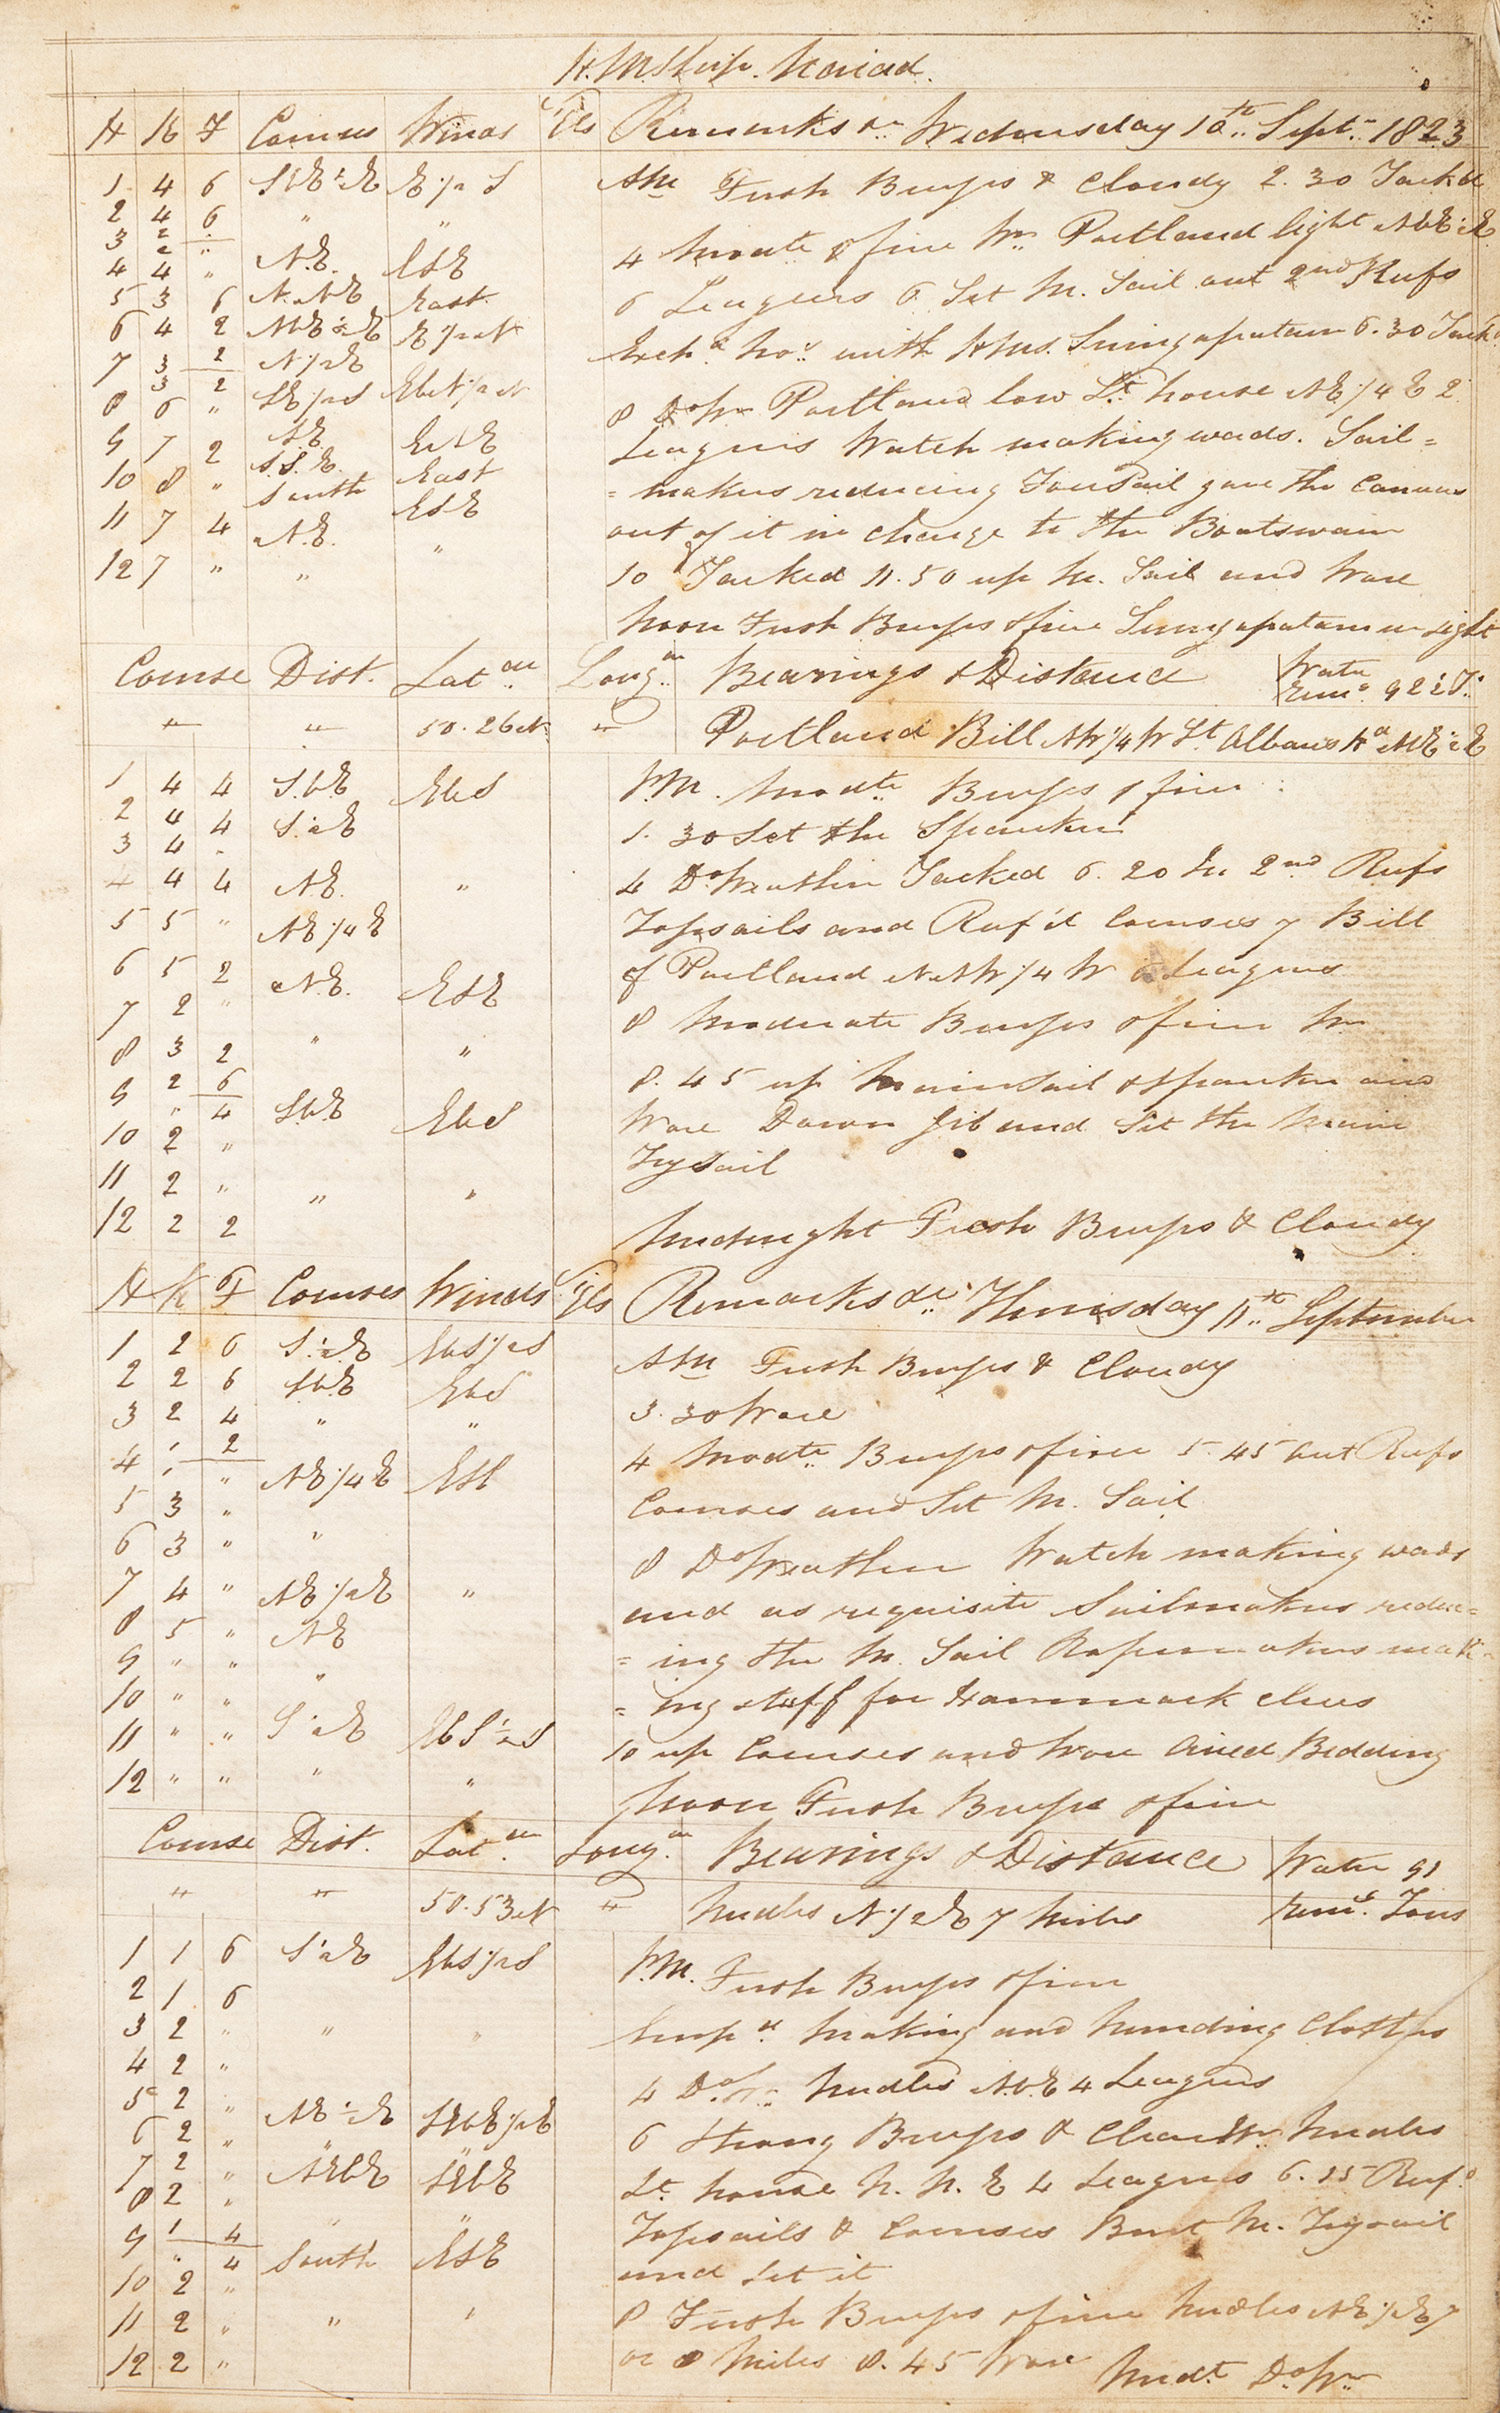 H.M.Ship. Naiad.
H K F Courses Winds Sigls Remarks on Wednesday 10th Septr. 1823
1 4 6 SbE½E E½S AM Fresh Breezes & Cloudy 2.30 Tacked
2 4 6 " "
3 2 "
2 N.E. ESE 4 Modte & fine Wr. Portland light NbE½E
4 4 "
5 3 6 N.NE East 6 Leagues 6 Set M. Sail out 2nd Reefs
6 4 2 NbE½E E½N Exchd. Nos. with HMS. Seringapatam 6.30 Tackd
7 3 2 N½E
3 2
8 6 " SE½S EbN½N 8 Do Wr Portland low Lt. house NE¼E 2
9 7 2 SE EbE Leagues Watch making wads. Sail=
10 8 " S.S.E. East =makers reducing Fore Sail gave the Canvas
South ESE
11 7 4 N.E. " out of it in charge to the Boatswain
12 7 " " 10 Tacked 11.50 up M. Sail and Wore
Noon Fresh Breezes & fine Seringapatam in sight
Course Dist. Latde. Longde. Bearings & Distance Water Remg. 92½ T.
" " 50.26N " Portland Bill NW¼W St Albans Hd NbE½E
1 4 4 S.b.E EbS P.M. Modte Breezes & fine
2 4 4 S.½E 1.30 Set the Spanker
3 4 "
4 4 4 N.E. " 4 Do Weather Tacked 6.20 In 2nd Reefs
5 5 " NE¼E Topsails and Reef'd Courses 7 Bill
6 5 2 N.E. ESE of Portland NNW¼W 6 Leagues
7 2 " 8 Moderate Breezes & fine Wr
8 3 2 " "
9 2 6 8.45 up Mainsail & Spanker and
" 4 SbE EbS Wore Down Jib and Set the Main
10 2 "
11 2 " " " Trysail
12 2 2 Midnight Fresh Breezes & Cloudy
H K F Courses Winds Sigls Remarks on Thursday 11th September
1 2 6 S.½E EbS½S AM Fresh Breezes & Cloudy
2 2 6 SbE EbS
3 2 4 " " 3.30 Wore
4 1 2
1 " NE¼E ESE 4 Modte Breezes & fine 5.45 Out Reefs
5 3 " Courses and Set M. Sail
6 3 " " 8 Do Weather Watch making wads
7 4 " NE½E " and as requisite Sailmakers reduc=
8 5 " NE
9 " " " =ing the M. Sail Ropemakers mak=
10 " " =ing stuff for Hammock clues
11 " " S½E EbS½S 10 up Courses and Wore Aired Bedding
12 " " " " Noon Fresh Breezes & fine
Course Dist. Latde. Longde. Bearings & Distance Water 91
" " 50.53N " Needles N½E 7 Miles Remg. Tons
1 1 6 S½E EbS½S P.M. Fresh Breezes & fine
2 1 6
3 2 " " " Empd. Making and Mending Cloths
4 2 " 4 Do Wr. Needles N.b.E 4 Leagues
5 2 " NE½E SEbE½E
6 2 " " " 6 Strong Breezes & Clear Wr. Needles
7 2 " NEbE SEbE Lt. house N.N.E 4 Leagues 6.15 Reefd
8 2 " " "
9 1 4 Topsails & Courses Bent M. Trysail
" 4 South ESE and set it
10 2 "
11 2 " " " 8 Fresh Breezes & fine Needles NE½E 7
12 2 " or 8 Miles 8.45 Wore Midt. Do Wr